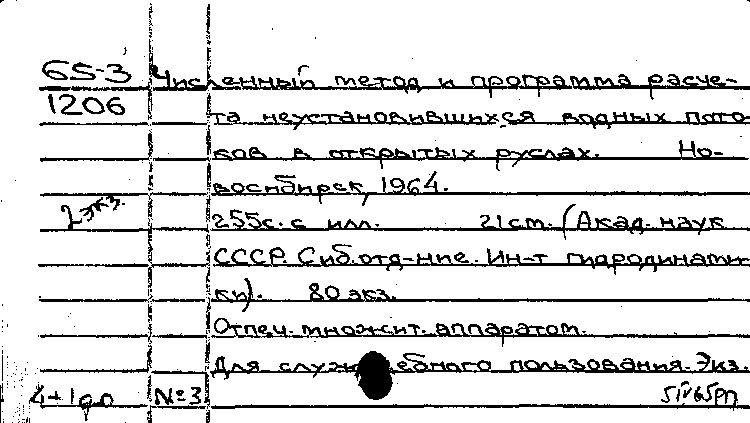 65-3 Численный метод и программа расче-
1206 та неустановившихся водных пото-
ков в открытых руслах. Но-
восибирск, 1964.
2 экз. 255с. с илл. 21 см. (Акад. наук
СССР. Сиб. отд-ние. Ин-т гидродинами-
ки). 80 экз.
Отпеч. множит. аппаратом.
Для служебного пользования. Экз.
№ 3